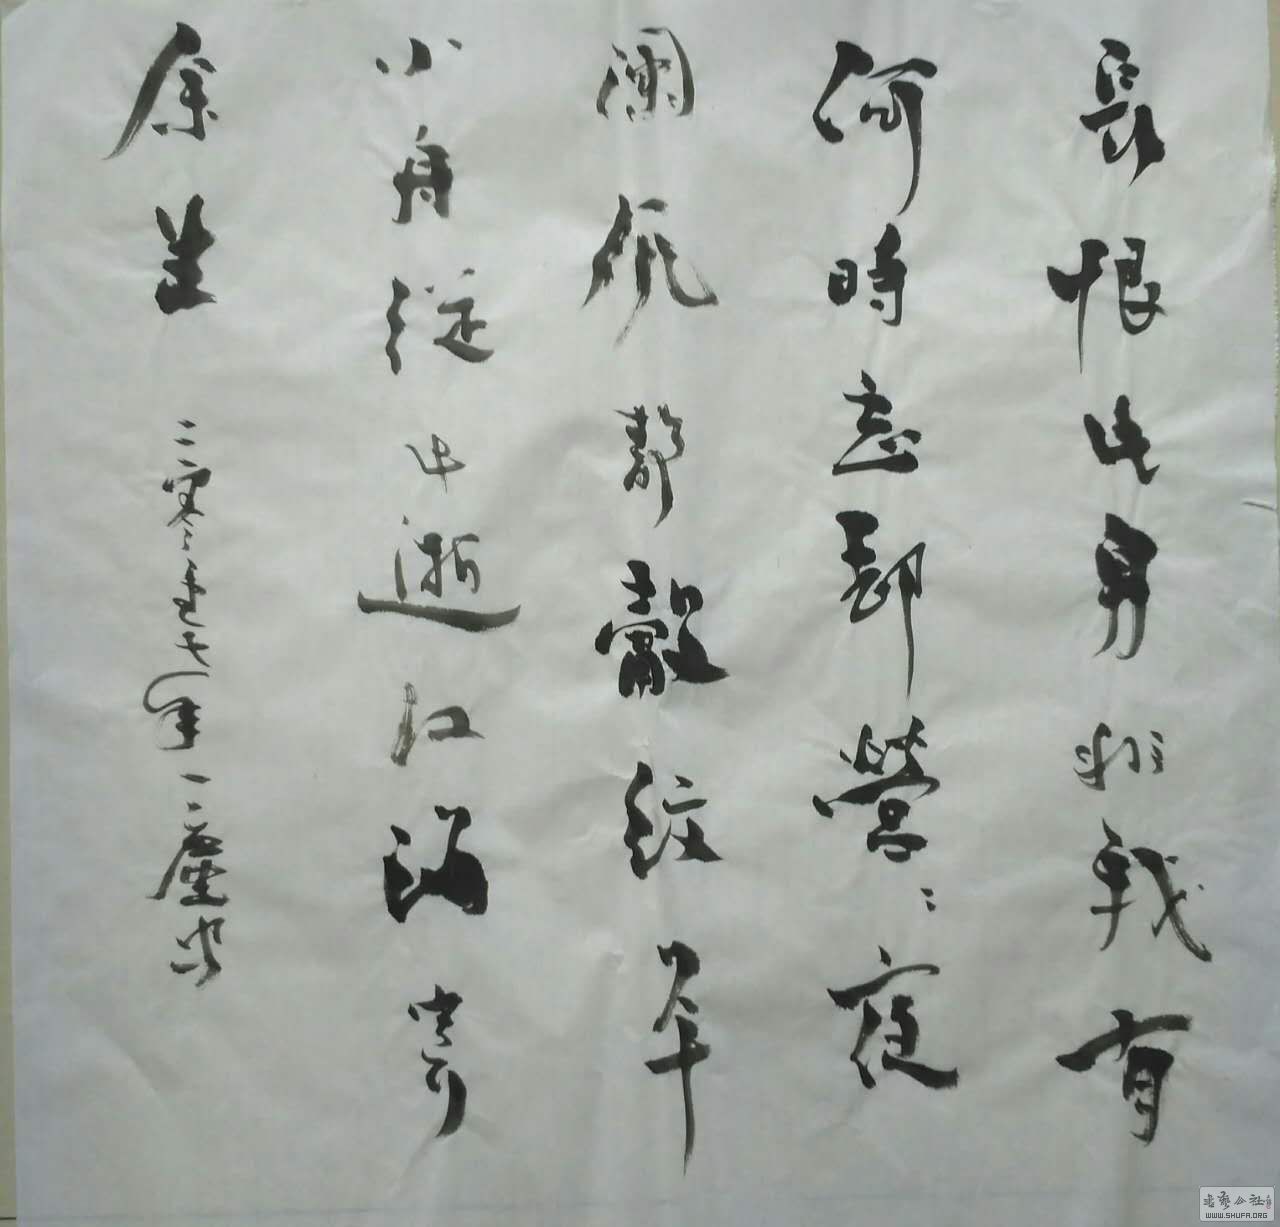 長恨此身非我有
何時忘卻營〻夜
闌風静縠紋平
小舟從此逝江海寄
余生
二零壹七年一塵书
书艺公社
WWW.SHUFA.ORG